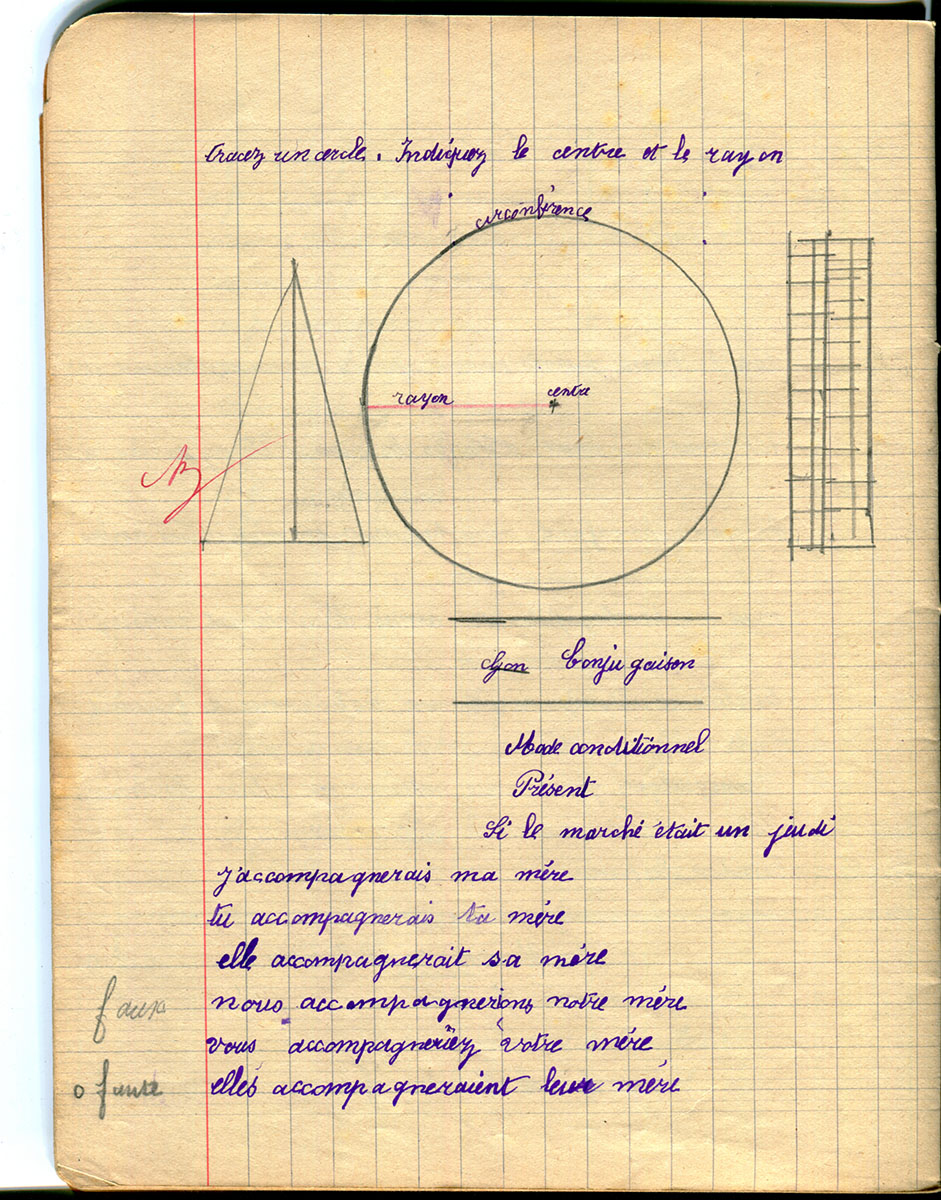 Tracez un cercle. Indiquez le centre et le rayon
circonférence
rayon centre
Conjugaison
Mode conditionnel
Présent
Si le marché était un jeudi
j'accompagnerais ma mère
tu accompagnerais ta mère
elle accompagnerait sa mère
nous accompagnerions notre mère
vous accompagneriez votre mère
0 faute elles accompagneraient leur mère